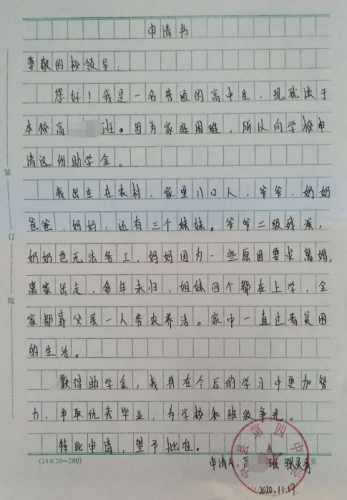 申请书
尊敬的校领导:
您好！我是一名普通的高中生，现就读于
本校高 班。因为家庭困难，所以向学校申
请这份助学金。
我出生在农村，家里八口人，爷爷，奶奶
爸爸，妈妈，还有三个妹妹。爷爷二级残疾，
奶奶也无法劳工，妈妈因为一些原因要求离婚，
离家出走，多年未归，姐妹四个都在上学，全
家都靠父亲一人务农养活。家中一直过着贫困
的生活。
获得助学金，我将在今后的学习中更加努
力，争取优秀毕业，为学校和班级争光。
特此申请，望予批准。
申请人: 高 班
2020.11.17
县第四中学
(14×20=280)
装
订
线